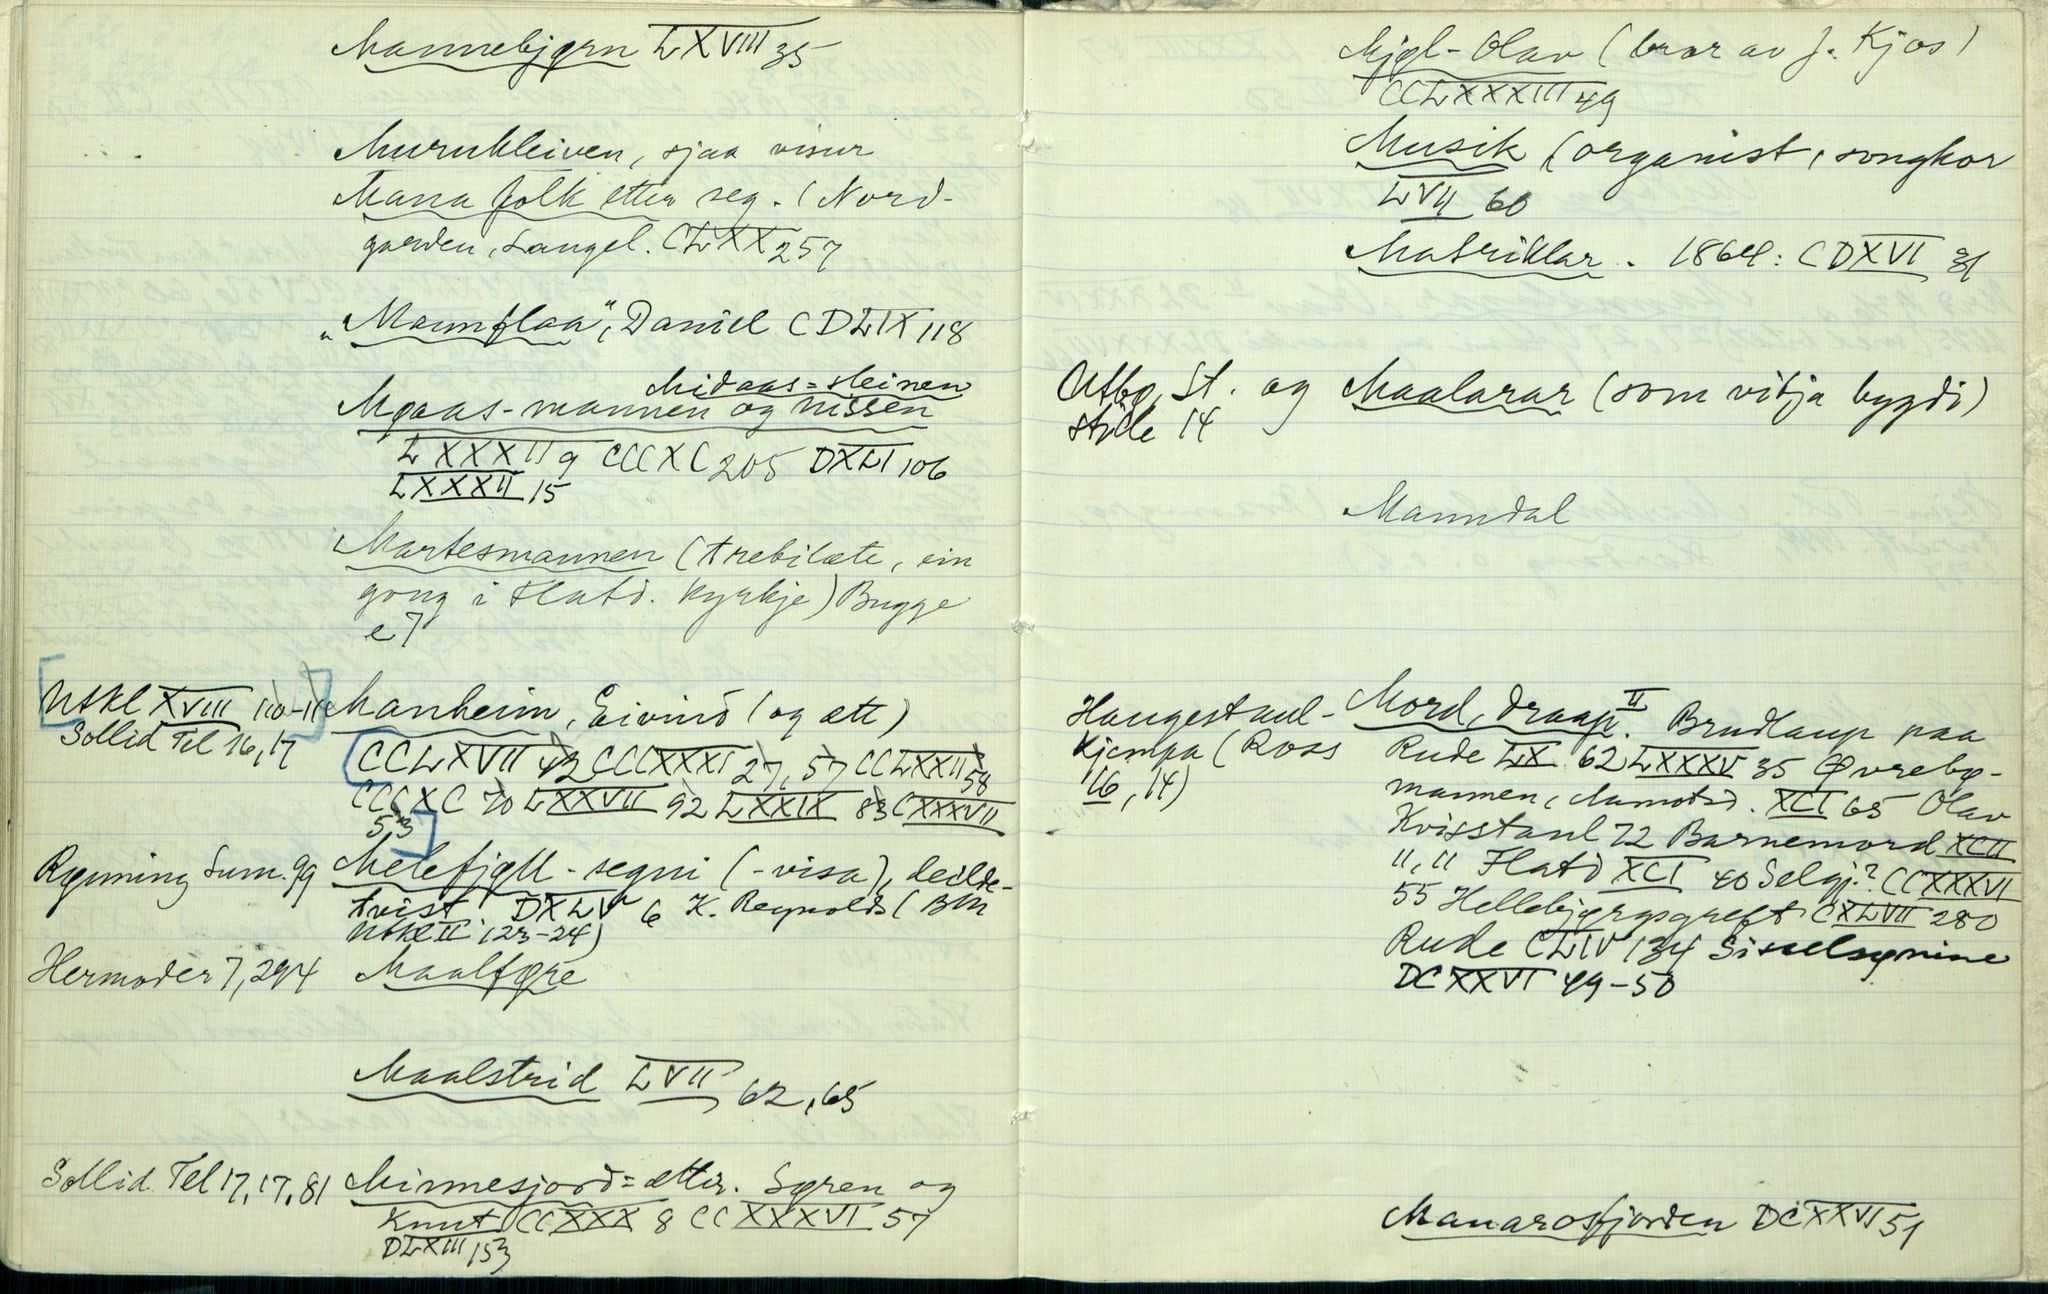 Mannebjørn LXVIII 35
Murukleiven, sjaa visur
Mana folk etter seg. (Nord-
garden, Langel. CLXX 257
"Mannflaa", Daniel CDLIX 118
Midaas-steinen
Møaas-mannen og nissen
LXXXII 9 CCCXC 205 DXLI 106
LXXXII 15
Martesmannen (trebilæte, ein
gong i Flatd. kyrkje) Bugge
e 7
Utkl XVIII 110-11 Manheim, Eivind (og ætt)
Sollid Tel 16, 17
CCLXVII 42 CCCXXXI 27, 57 CCLXXII 58
CCCXC 70 LXXVII 92 LXXIX 83 CXXXVII
53
Rynning Sum. 99 Melefjøll-segni (-visa), deilde-
tvist DXLV 6 K. Reynolds (Blm
Utkl II 123-24)
Hermoder 7, 294 Maalføre
Maalstrid LVII 62, 65
Sollid Tel 17, 17, 81 Minnesjord=ætter. Søren og
Knut CCXXX 8 CCXXXVI 57
DLXIII 153
Mjøl-Olav (bror av J. Kjos)
CCLXXXIII 49
Musik (organist, songkor
LVII 60
Matriklar. 1864: CDXVI 31
Utbø, St. og Maalarar (som vitja bygdi)
stile 14
Manndal
Haugestaul- Mord, draap II. Brudlaup paa
Kjempa (Ross Rude LX 62 LXXXV 35 Øvrebø-
16, 14) mannen, Aamotsd. XCI 65 Olav
Kvisstaul 72 Barnemord XCII
11, 11 Flatd XCI 40 Selgj.? CCXXXVI
55 Hellebjørgsgreft CXLVII 280
Rude CLIV 134 Sisselsynine
DCXXVI 49-50
Manarosfjorden DCXXVI 51